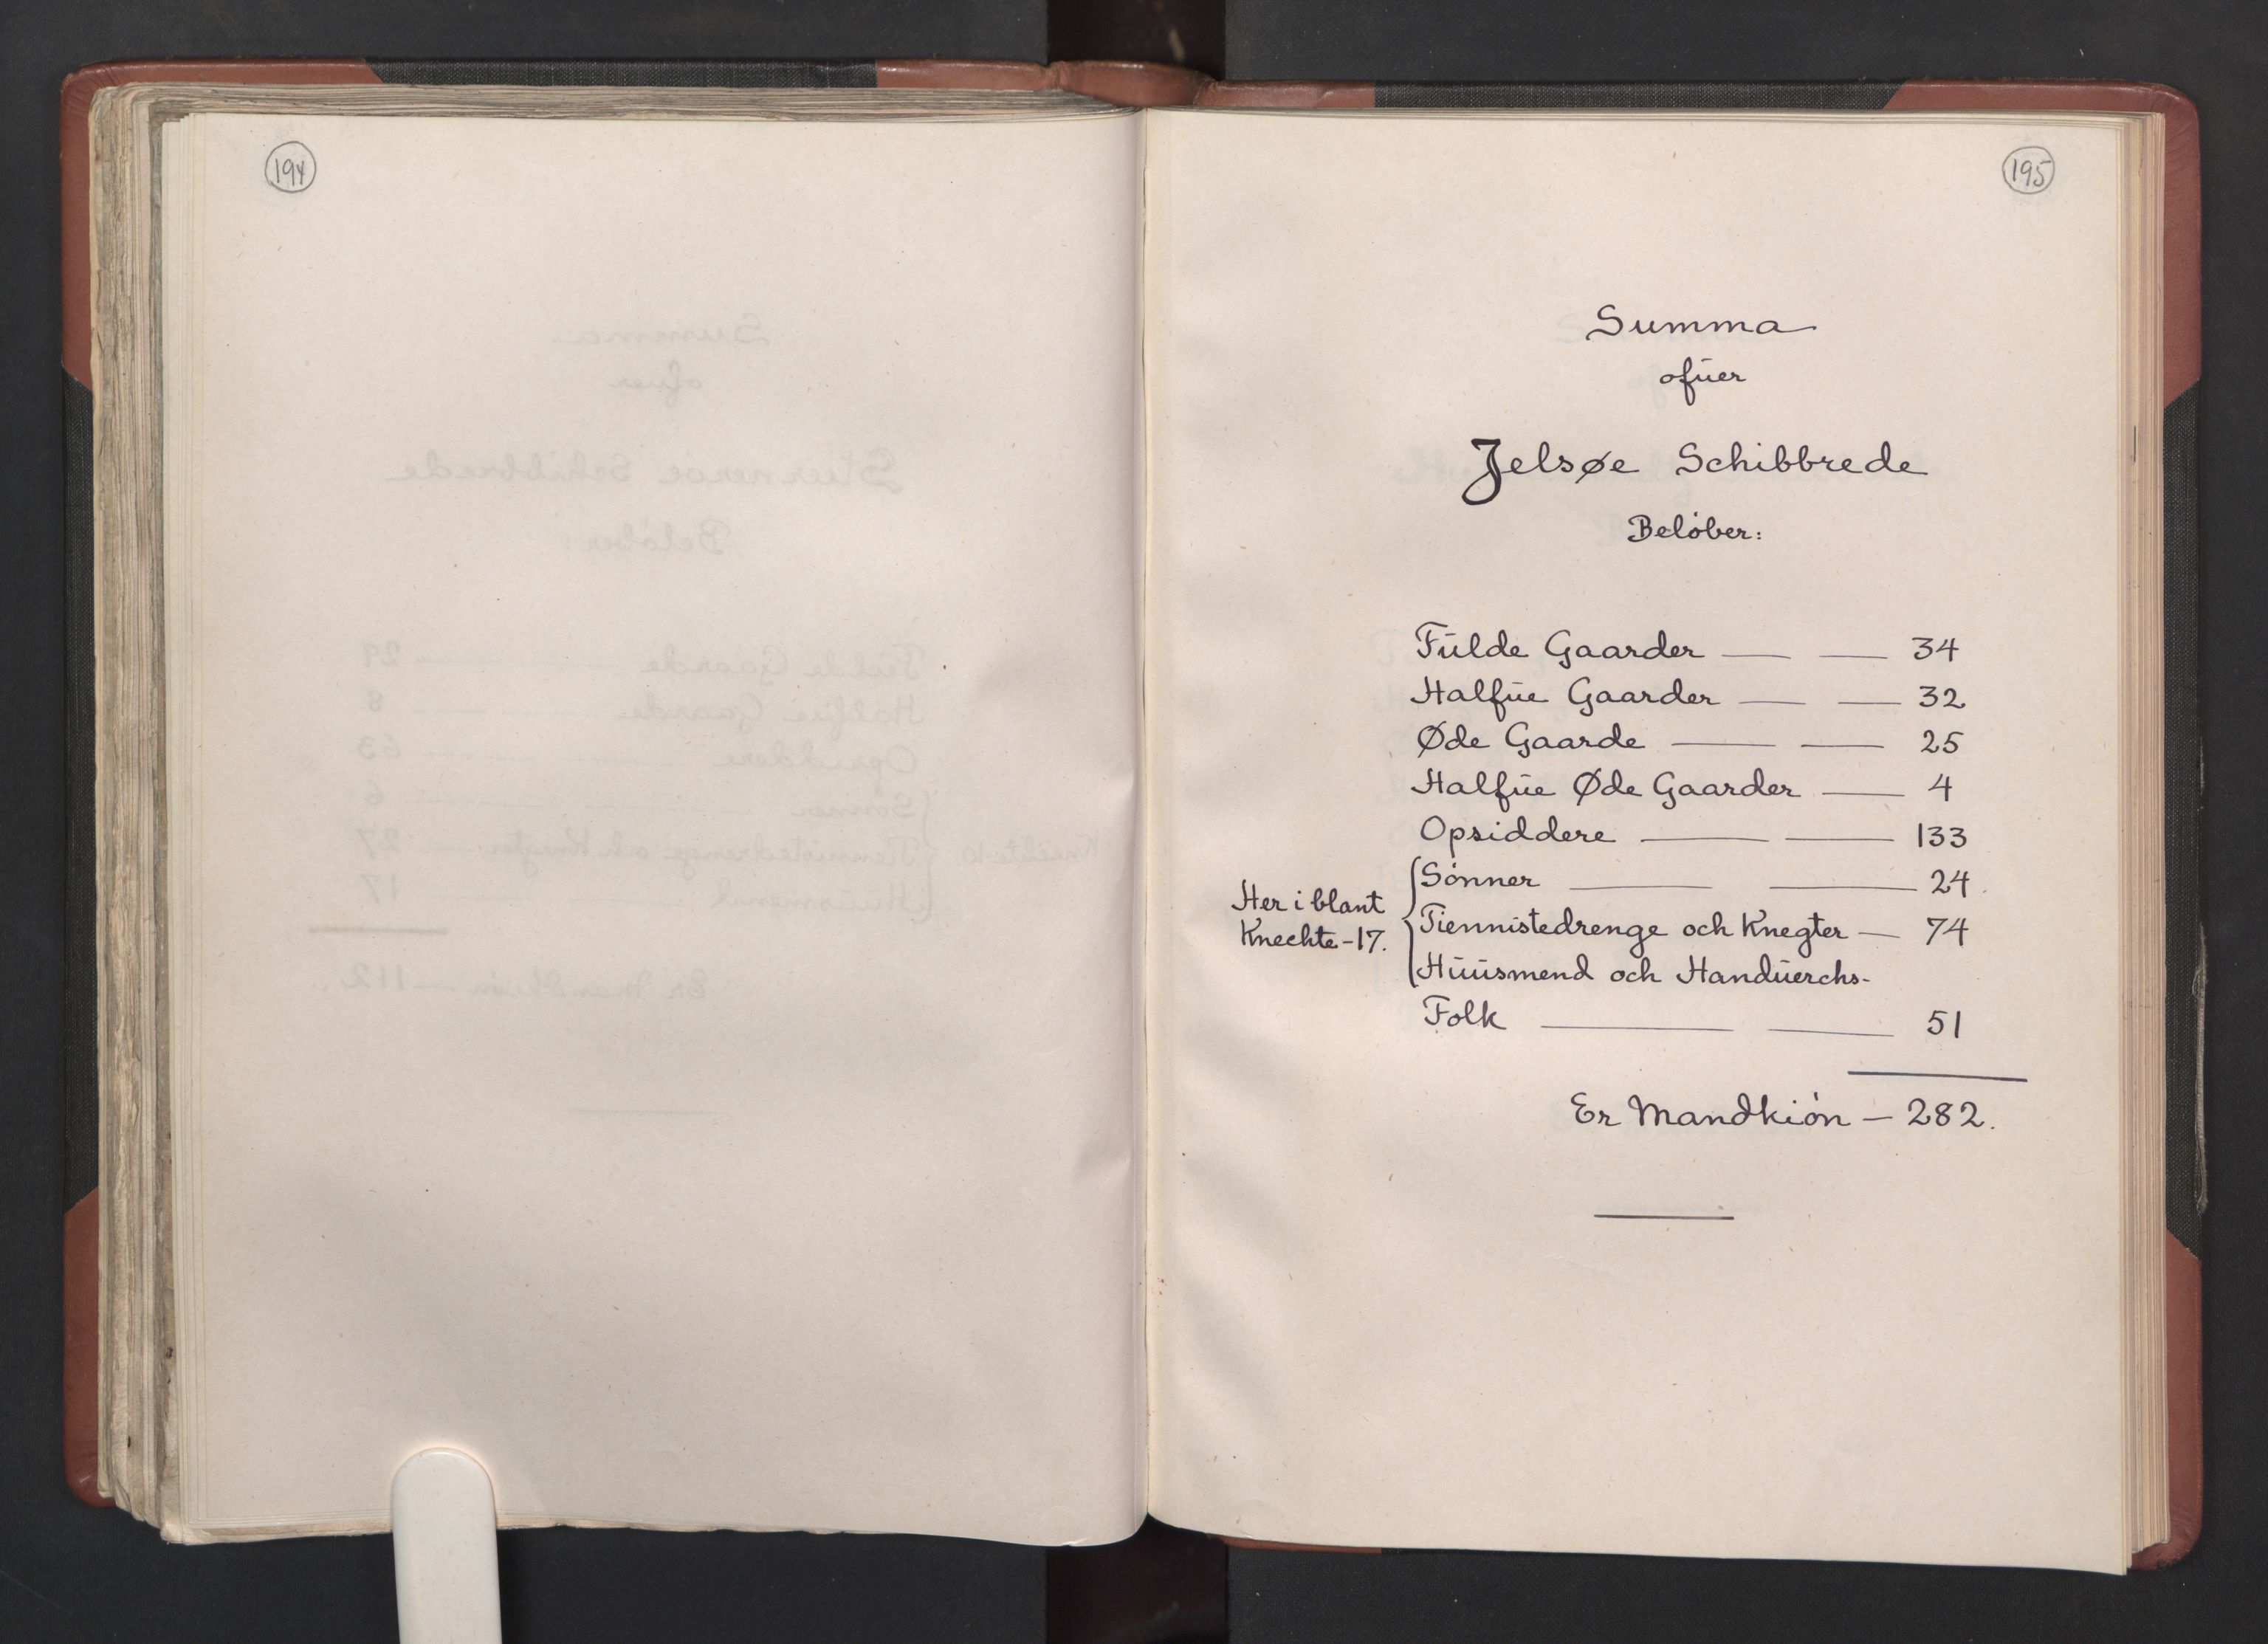 194
195
Summa
ofüer
Jelsøe Schibbrede
Belöber:
Fülde Gaarder — — 34
Halfüe Gaarder — — 32
Øde Gaarde — — 25
Halfüe Øde Gaarder — 4
Opsiddere — — 133
Sönner — — 24
Her i blant
Knechte - 17.
Tiennistedrenge och Knegter — 74
Hüüsmend och Handüerchs-
Folk — — 51
Er Mandkiön — 282.